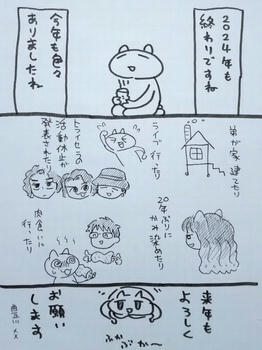 2024年も
終わりですね
今年も色々
ありましたね
弟が家建てたり
ライブ行ったり
トライセラの
活動休止が
発表されたり
20年ぶりに
かみ染めたり
肉食いに
行ったり
来年も
よろしく
お願い
します
ふかぶか〜